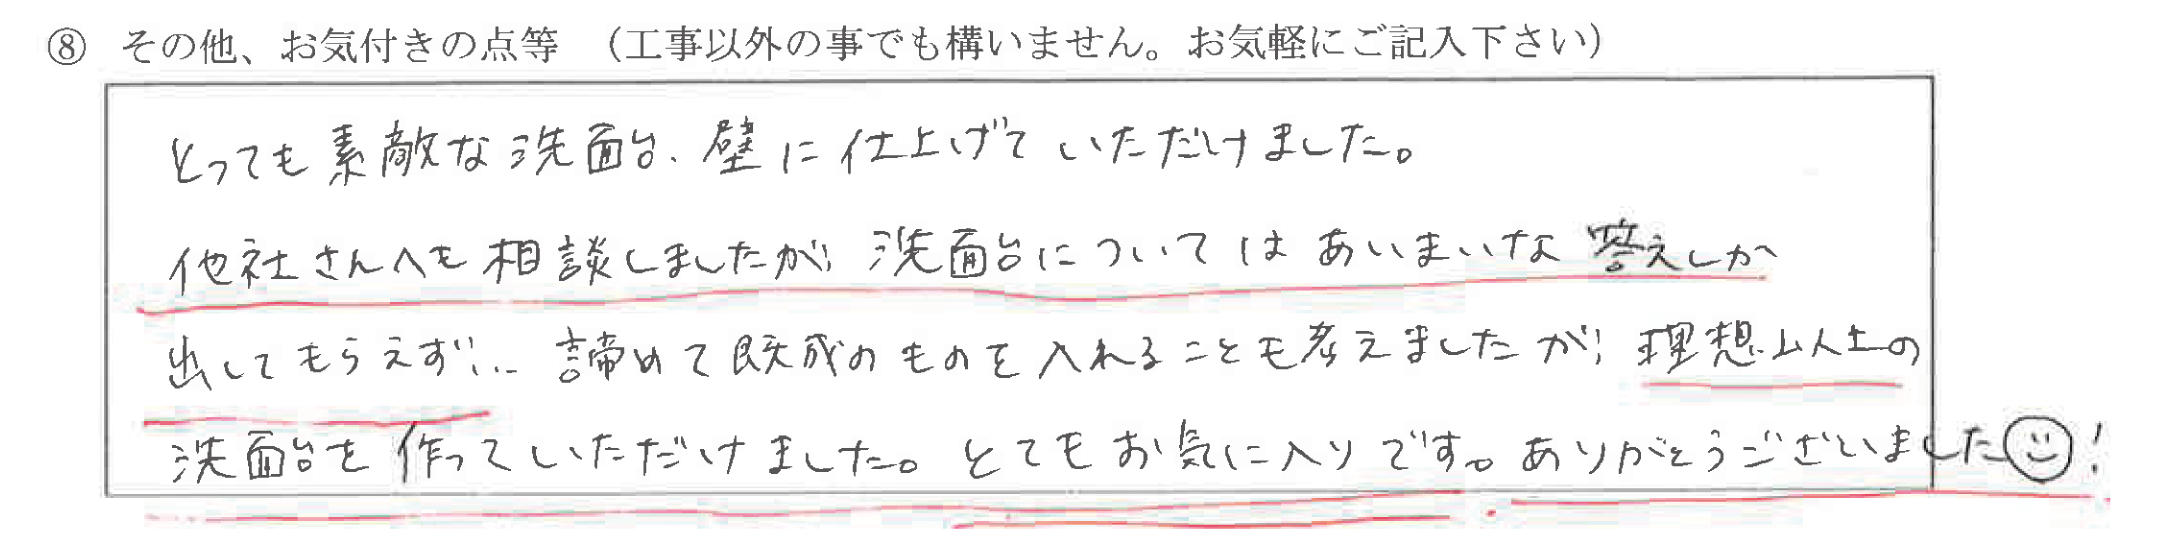 ⑧ その他、お気付きの点等 （工事以外の事でも構いません。お気軽にご記入下さい）
とっても素敵な洗面台、壁に仕上げていただけました。
他社さんへも相談しましたが、洗面台についてはあいまいな答えしか
出してもらえず… 諦めて既成のものを入れることも考えましたが、理想以上の
洗面台を作っていただけました。とてもお気に入りです。ありがとうございました☺!